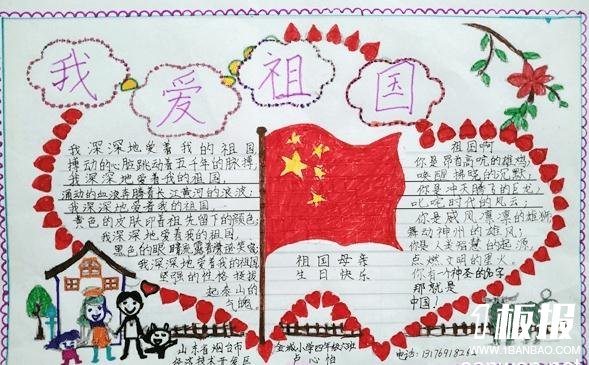 我爱祖国
我深深地爱着我的祖国,
搏动的心脏跳动着五千年的脉搏,
我深深地爱着我的祖国,
涌动的血浪奔腾着长江黄河的浪波;
我深深地爱着我的祖国,
黄色的皮肤印着祖先留下的颜色;
我深深地爱着我的祖国,
黑色的眼睛流露着
我深深地爱着我的祖国
坚强的性格挺拔
起泰山的
气魄
祖国母亲
生日快乐
祖国啊
你是昂首高吭的雄鸡,
唤醒拂晓的沉默,
你是冲天腾飞的巨龙,
叱咤时代的风云,
你是威风凛凛的雄狮
舞动神州的雄风;
你是人类智慧的起源,
点燃文明的星火。
你有个神圣的名字
那就是
中国!
山东省烟台市
经济技术开发区
金城小学四年级六班
卢心怡
电话:
板报
WWW.1BANBAO.COM